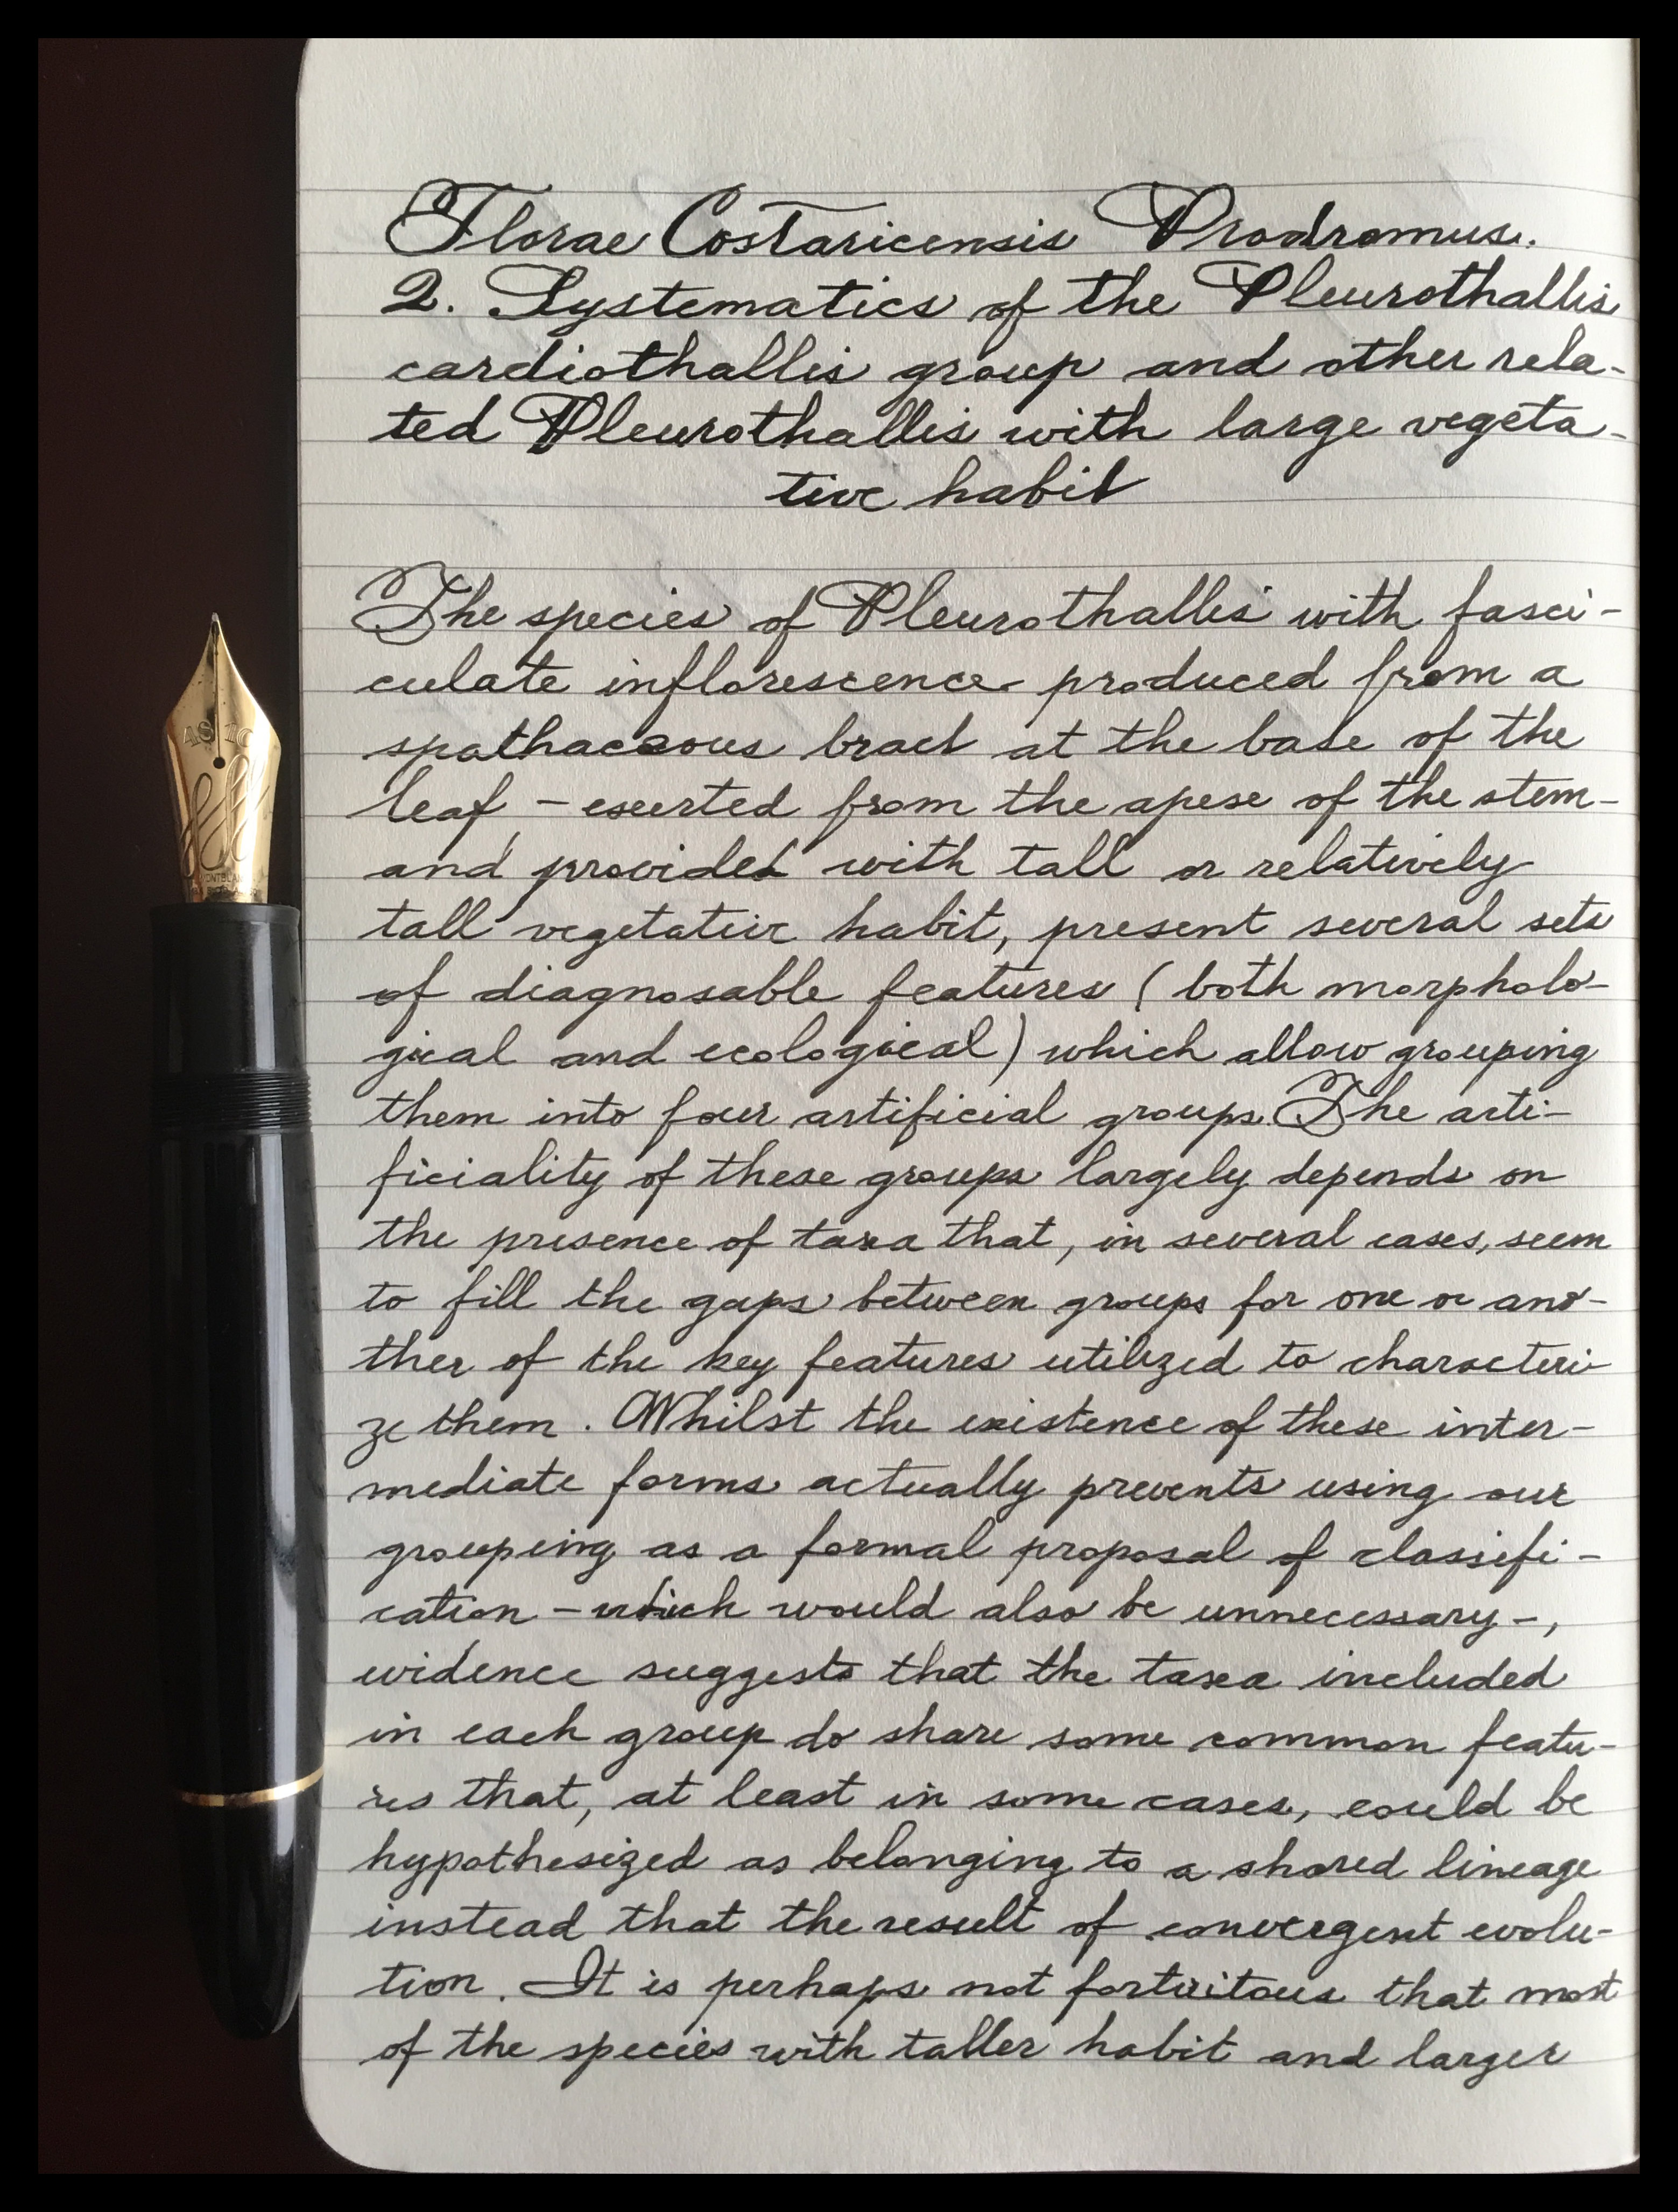 Florae Costaricensis Prodromus.
2. Systematics of the Pleurothallis
cardiothallis group and other rela-
ted Pleurothallis with large vegeta-
tive habit
The species of Pleurothallis with fasci-
culate inflorescence produced from a
spathaceous bract at the base of the
leaf - exserted from the apex of the stem-
and provided with tall or relatively
tall vegetative habit, present several sets
of diagnosable features (both morpholo-
gical and ecological) which allow grouping
them into four artificial groups. The arti-
ficiality of these groups largely depends on
the presence of taxa that, in several cases, seem
to fill the gaps between groups for one or ano-
ther of the key features utilized to characteri-
ze them. Whilst the existence of these inter-
mediate forms actually prevents using our
grouping as a formal proposal of classifi-
cation - which would also be unnecessary -,
evidence suggests that the taxa included
in each group do share some common featu-
res that, at least in some cases, could be
hypothesized as belonging to a shared lineage
instead that the result of convergent evolu-
tion. It is perhaps not fortuitous that most
of the species with taller habit and larger
4810
MONTBLANC